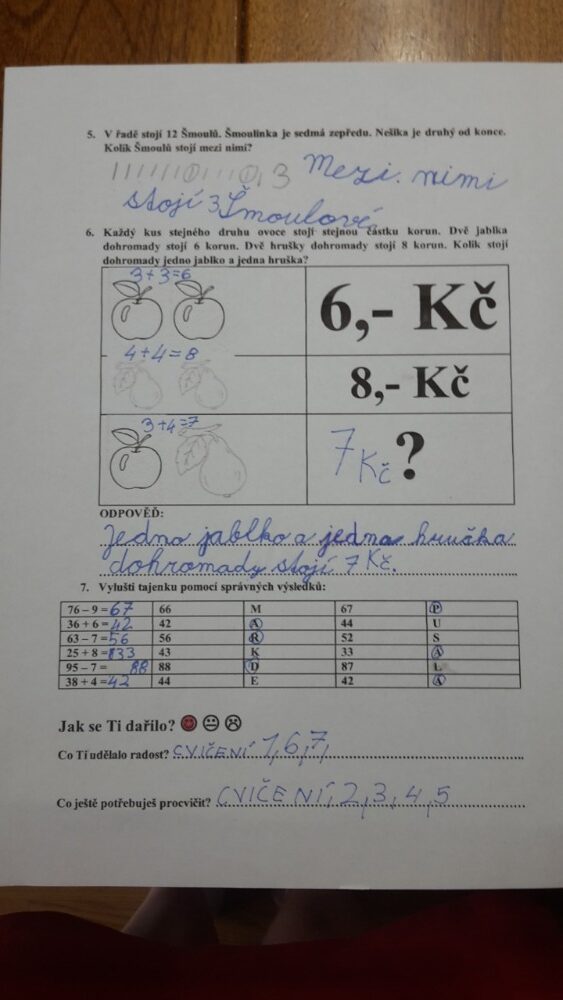 5. V řadě stojí 12 Šmoulů. Šmoulinka je sedmá zepředu. Nešika je druhý od konce.
Kolik Šmoulů stojí mezi nimi?
3 Mezi nimi
stojí 3 Šmoulové.
6. Každý kus stejného druhu ovoce stojí stejnou částku korun. Dvě jablka
dohromady stojí 6 korun. Dvě hrušky dohromady stojí 8 korun. Kolik stojí
dohromady jedno jablko a jedna hruška?
3+3=6
6,- Kč
4+4=8
8,- Kč
3+4=7
7 Kč ?
ODPOVĚĎ:
Jedno jablko a jedna hruška
dohromady stojí 7 Kč.
7. Vylušti tajenku pomocí správných výsledků:
76 – 9 = 67 66 M 67 P
36 + 6 = 42 42 A 44 U
63 – 7 = 56 56 R 52 S
25 + 8 = 33 43 K 33 A
95 – 7 = 88 88 D 87 L
38 + 4 = 42 44 E 42 A
Jak se Ti dařilo?
Co Ti udělalo radost? CVIČENÍ 1,6,7,
Co ještě potřebuješ procvičit? CVIČENÍ, 2,3,4,5